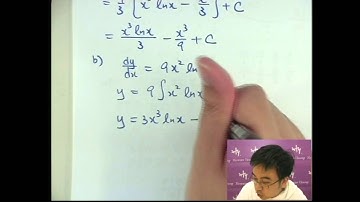 = 1/3 [x³ lnx - x³/3] + C
= x³ lnx/3 - x³/9 + C
b) dy/dx = 9x² ln
y = 9∫x² lnx
y = 3x³ lnx -